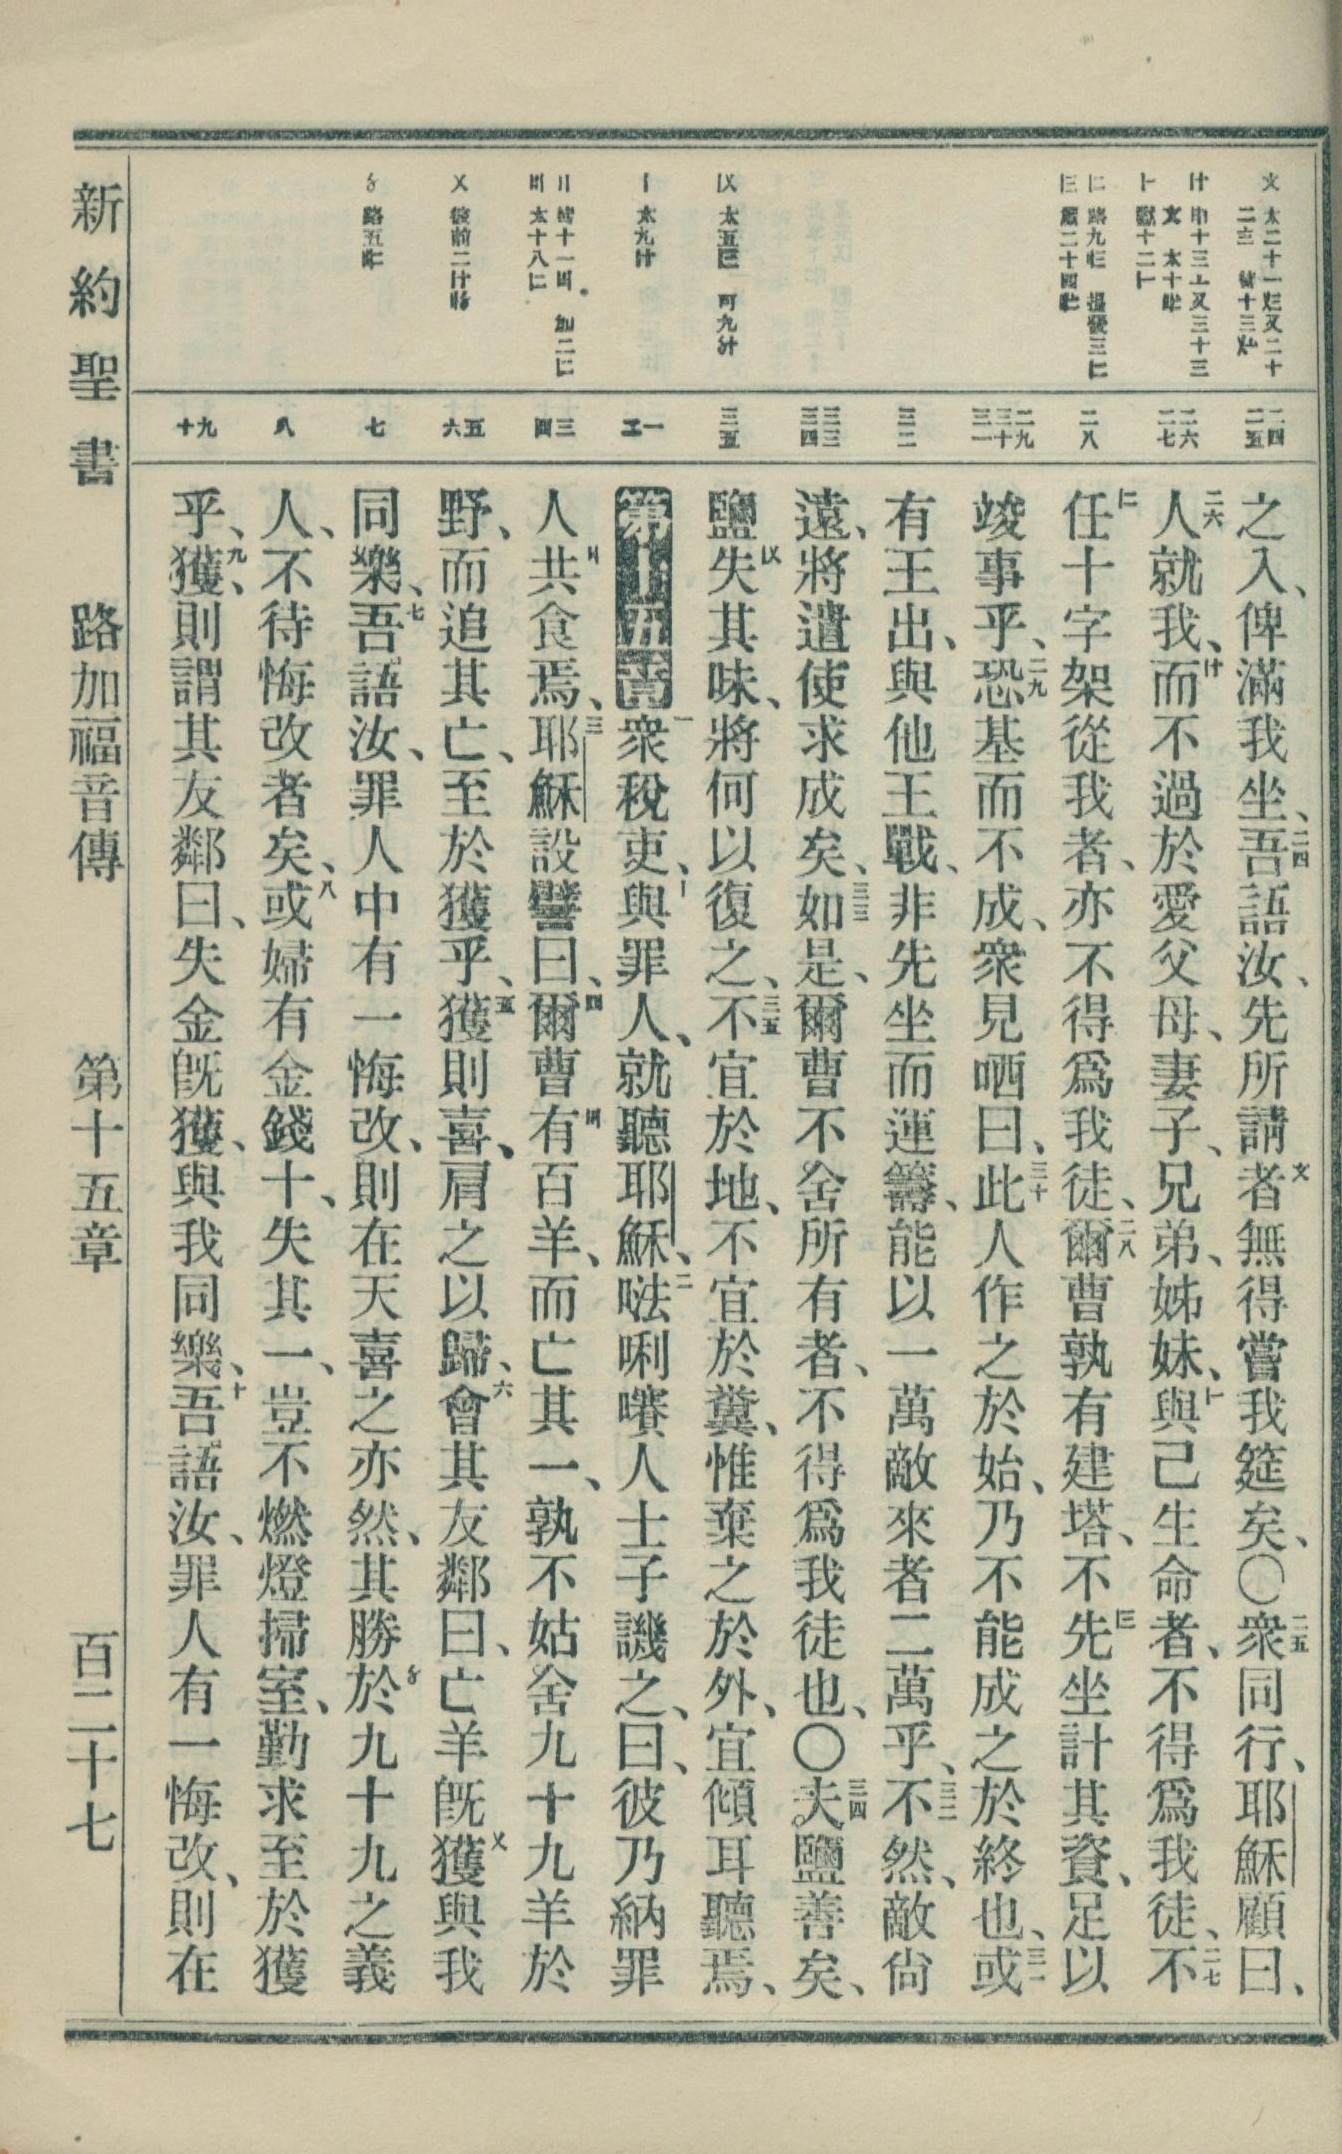 之入、俾滿我坐、二四吾語汝、先所請者無得嘗我筵矣、〇二五衆同行、耶穌顧曰、
二六人就我、而不過於愛父母、妻子、兄弟、姊妹、與己生命者、不得爲我徒、二七不
任十字架從我者、亦不得爲我徒、二八爾曹孰有建塔、不先坐計其資、足以
竣事乎、二九恐基而不成、衆見哂曰、三十此人作之於始、乃不能成之於終也、三一或
有王出、與他王戰、非先坐而運籌、能以一萬敵來者二萬乎、三二不然、敵尙
遠、將遣使求成矣、三三如是、爾曹不舍所有者、不得爲我徒也、〇三四夫鹽善矣、
鹽失其味、將何以復之、三五不宜於地、不宜於糞、惟棄之於外、宜傾耳聽焉、
第十五章 一衆稅吏、與罪人、就聽耶穌、二㗖唎㘔人士子譏之、曰、彼乃納罪
人共食焉、三耶穌設譬曰、四爾曹有百羊、而亡其一、孰不姑舍九十九羊於
野、而追其亡、至於獲乎、五獲則喜、肩之以歸、六會其友鄰曰、亡羊旣獲與我
同樂、七吾語汝、罪人中有一悔改、則在天喜之亦然、其勝於九十九之義
人、不待悔改者矣、八或婦有金錢十、失其一、豈不燃燈掃室、勤求至於獲
乎、九獲、則謂其友鄰曰、失金旣獲、與我同樂、十吾語汝、罪人有一悔改、則在
二四 二五
二六 二七
二八
二九 三十 三一
三二
三三 三四
三五
一 二
三 四
五 六
七
八
九 十
新約聖書 路加福音傳 第十五章 百二十七